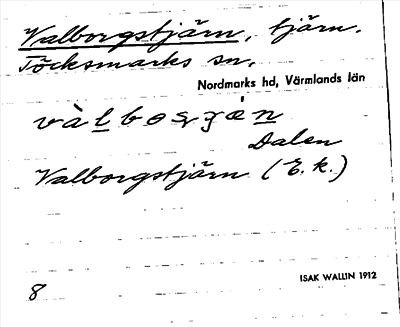 Valborgstjärn, tjärn.
Töcksmarks sn,
Nordmarks hd, Värmlands län
Dalen
Valborgstjärn (E. k.)
ISAK WALLIN 1912
8